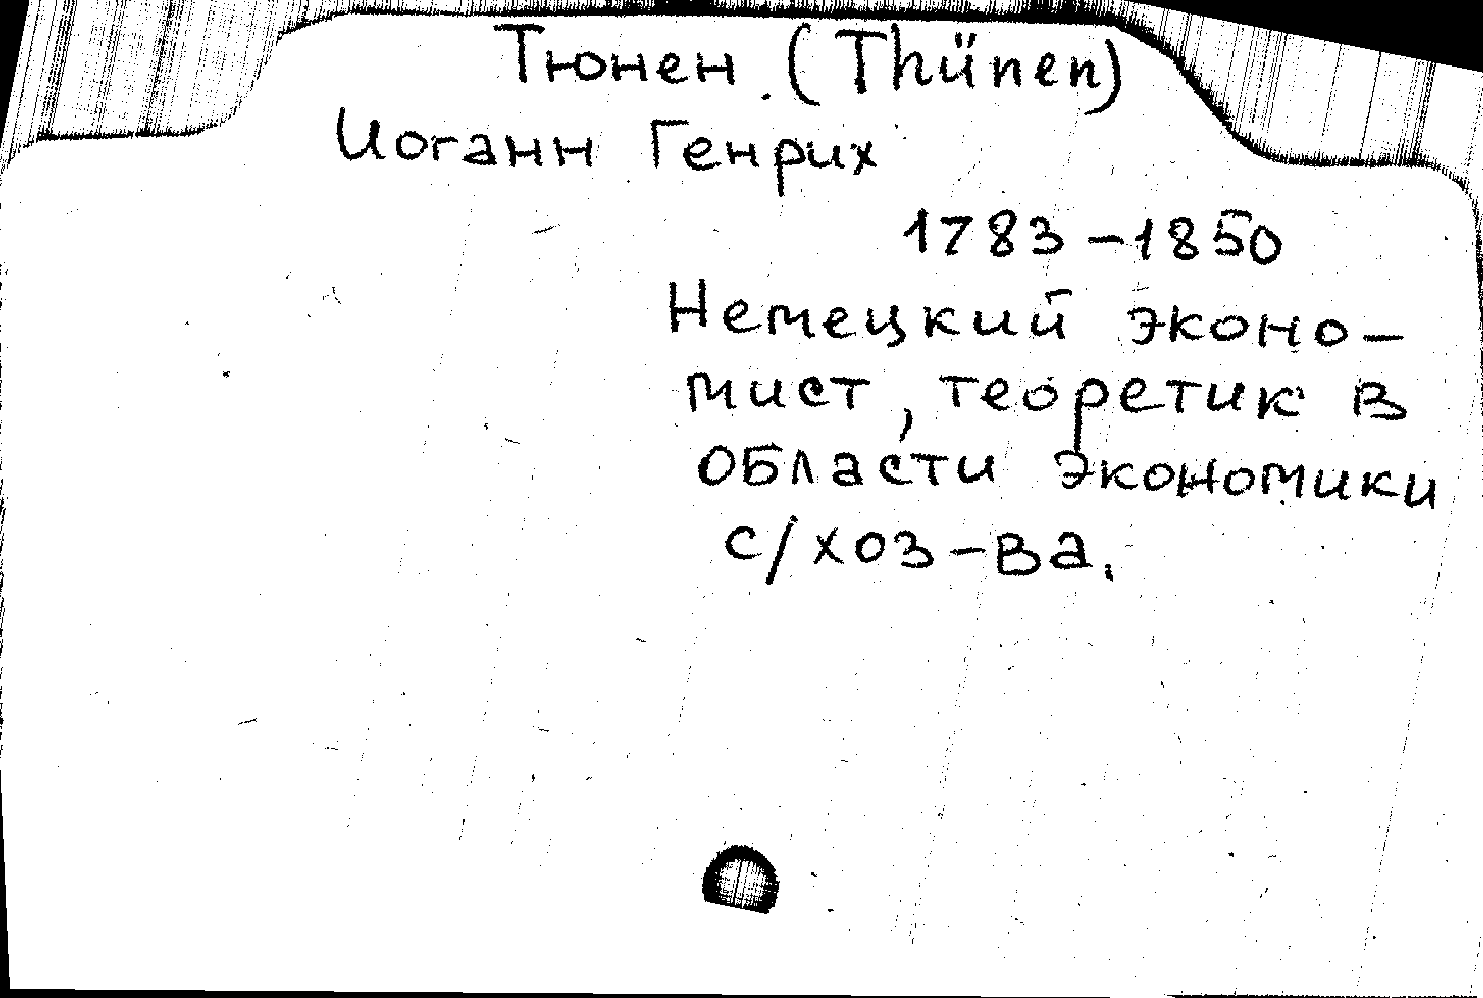 Тюнен. (Thünen)
Иоганн Генрих
1783 – 1850
Немецкий эконо-
мист, теоретик в
области экономики
с/хоз-ва.